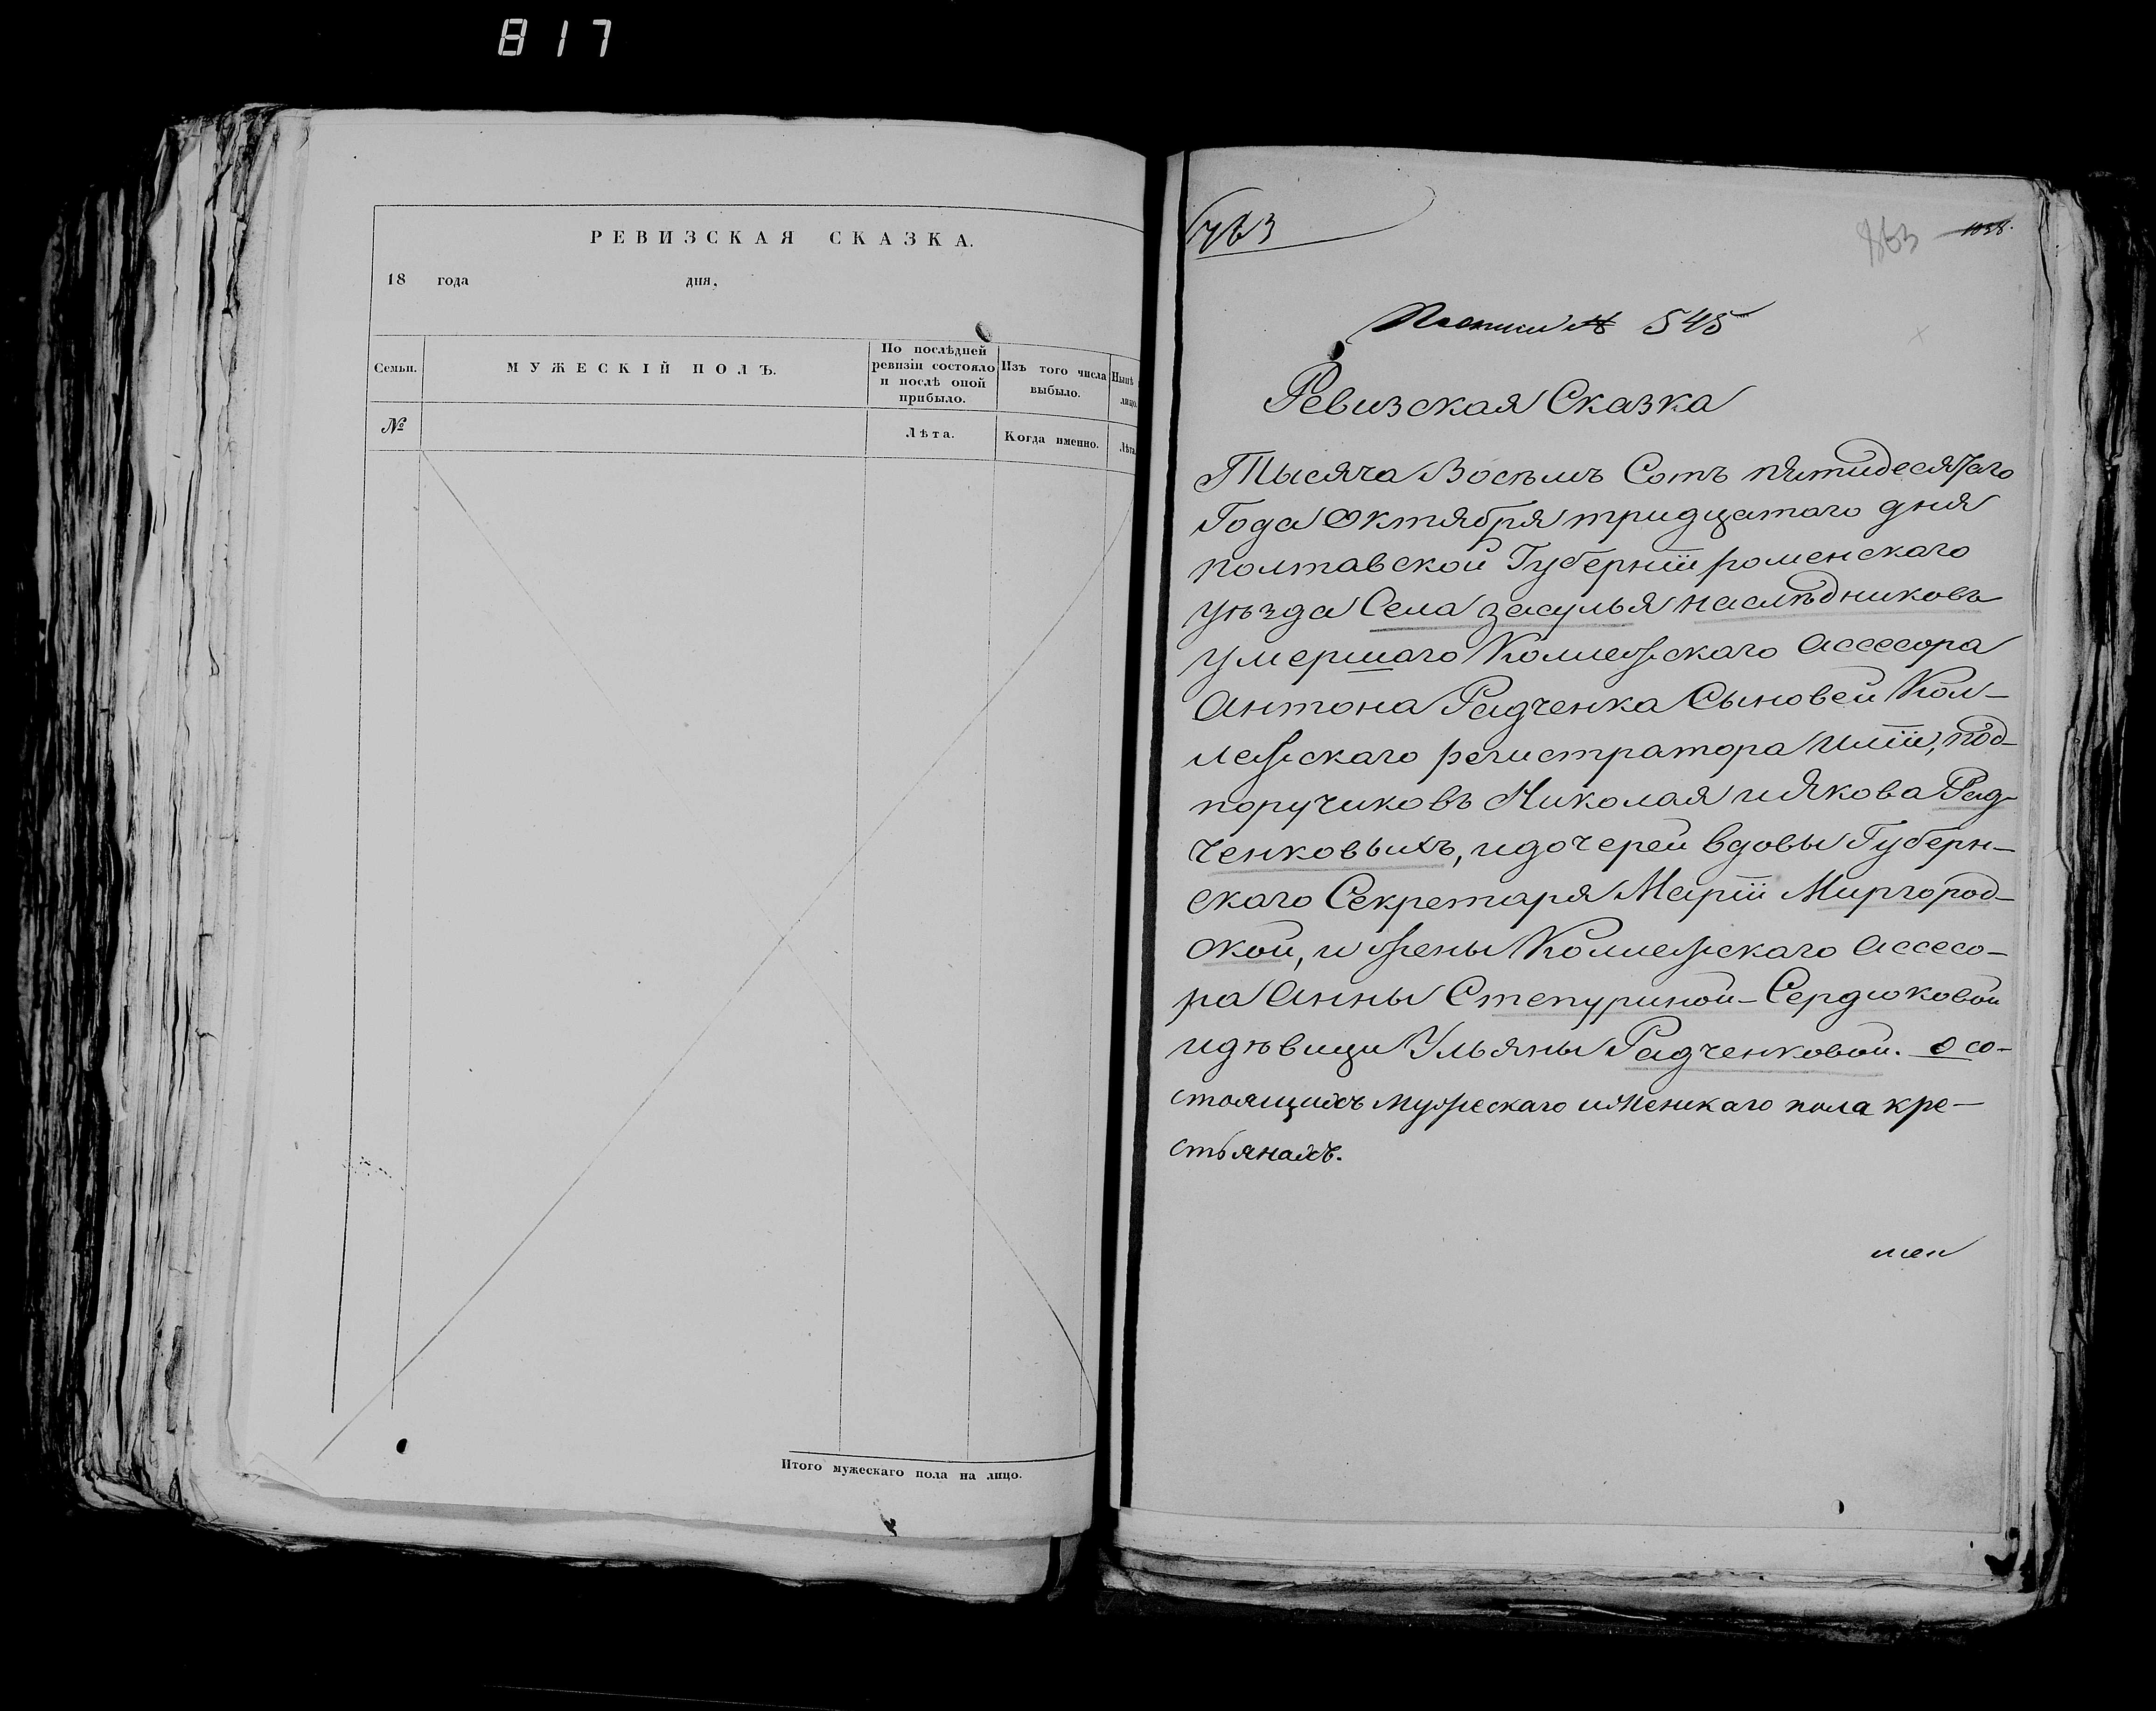 817
РЕВИЗСКАЯ СКАЗКА.
18 года дня,
Семьи.
МУЖЕСКІЙ ПОЛЪ.
По послѣдней
ревизіи состояло
и послѣ оной
прибыло.
Изъ того числа
выбыло.
Нынѣ
лицо.
№
Лѣта.
Когда именно.
Лѣта
Итого мужескаго пола на лицо.
763
863
1038.
№ 545
Ревизская Сказка
Тысяча Восѣмъ Сотъ пятидесятаго
Года Октября тридцатаго дня
полтавской Губерніи роменскаго
уѣзда Села засулья наслѣдниковъ
умершаго Коллежскаго Ассесора
Антона Радченка Сыновей Кол-
лежскаго регистратора Иліи, под-
поручиковъ Николая и Якова Рад-
ченковыхъ, и дочерей вдовы Губерн-
скаго Секретаря Маріи Миргород-
ской, и жены Коллежскаго Ассесо-
ра Анны Степуриной-Сердюковой
и дѣвици Ульяны Радченковой. о со-
стоящихъ мужескаго и женскаго пола кре-
стьянахъ.